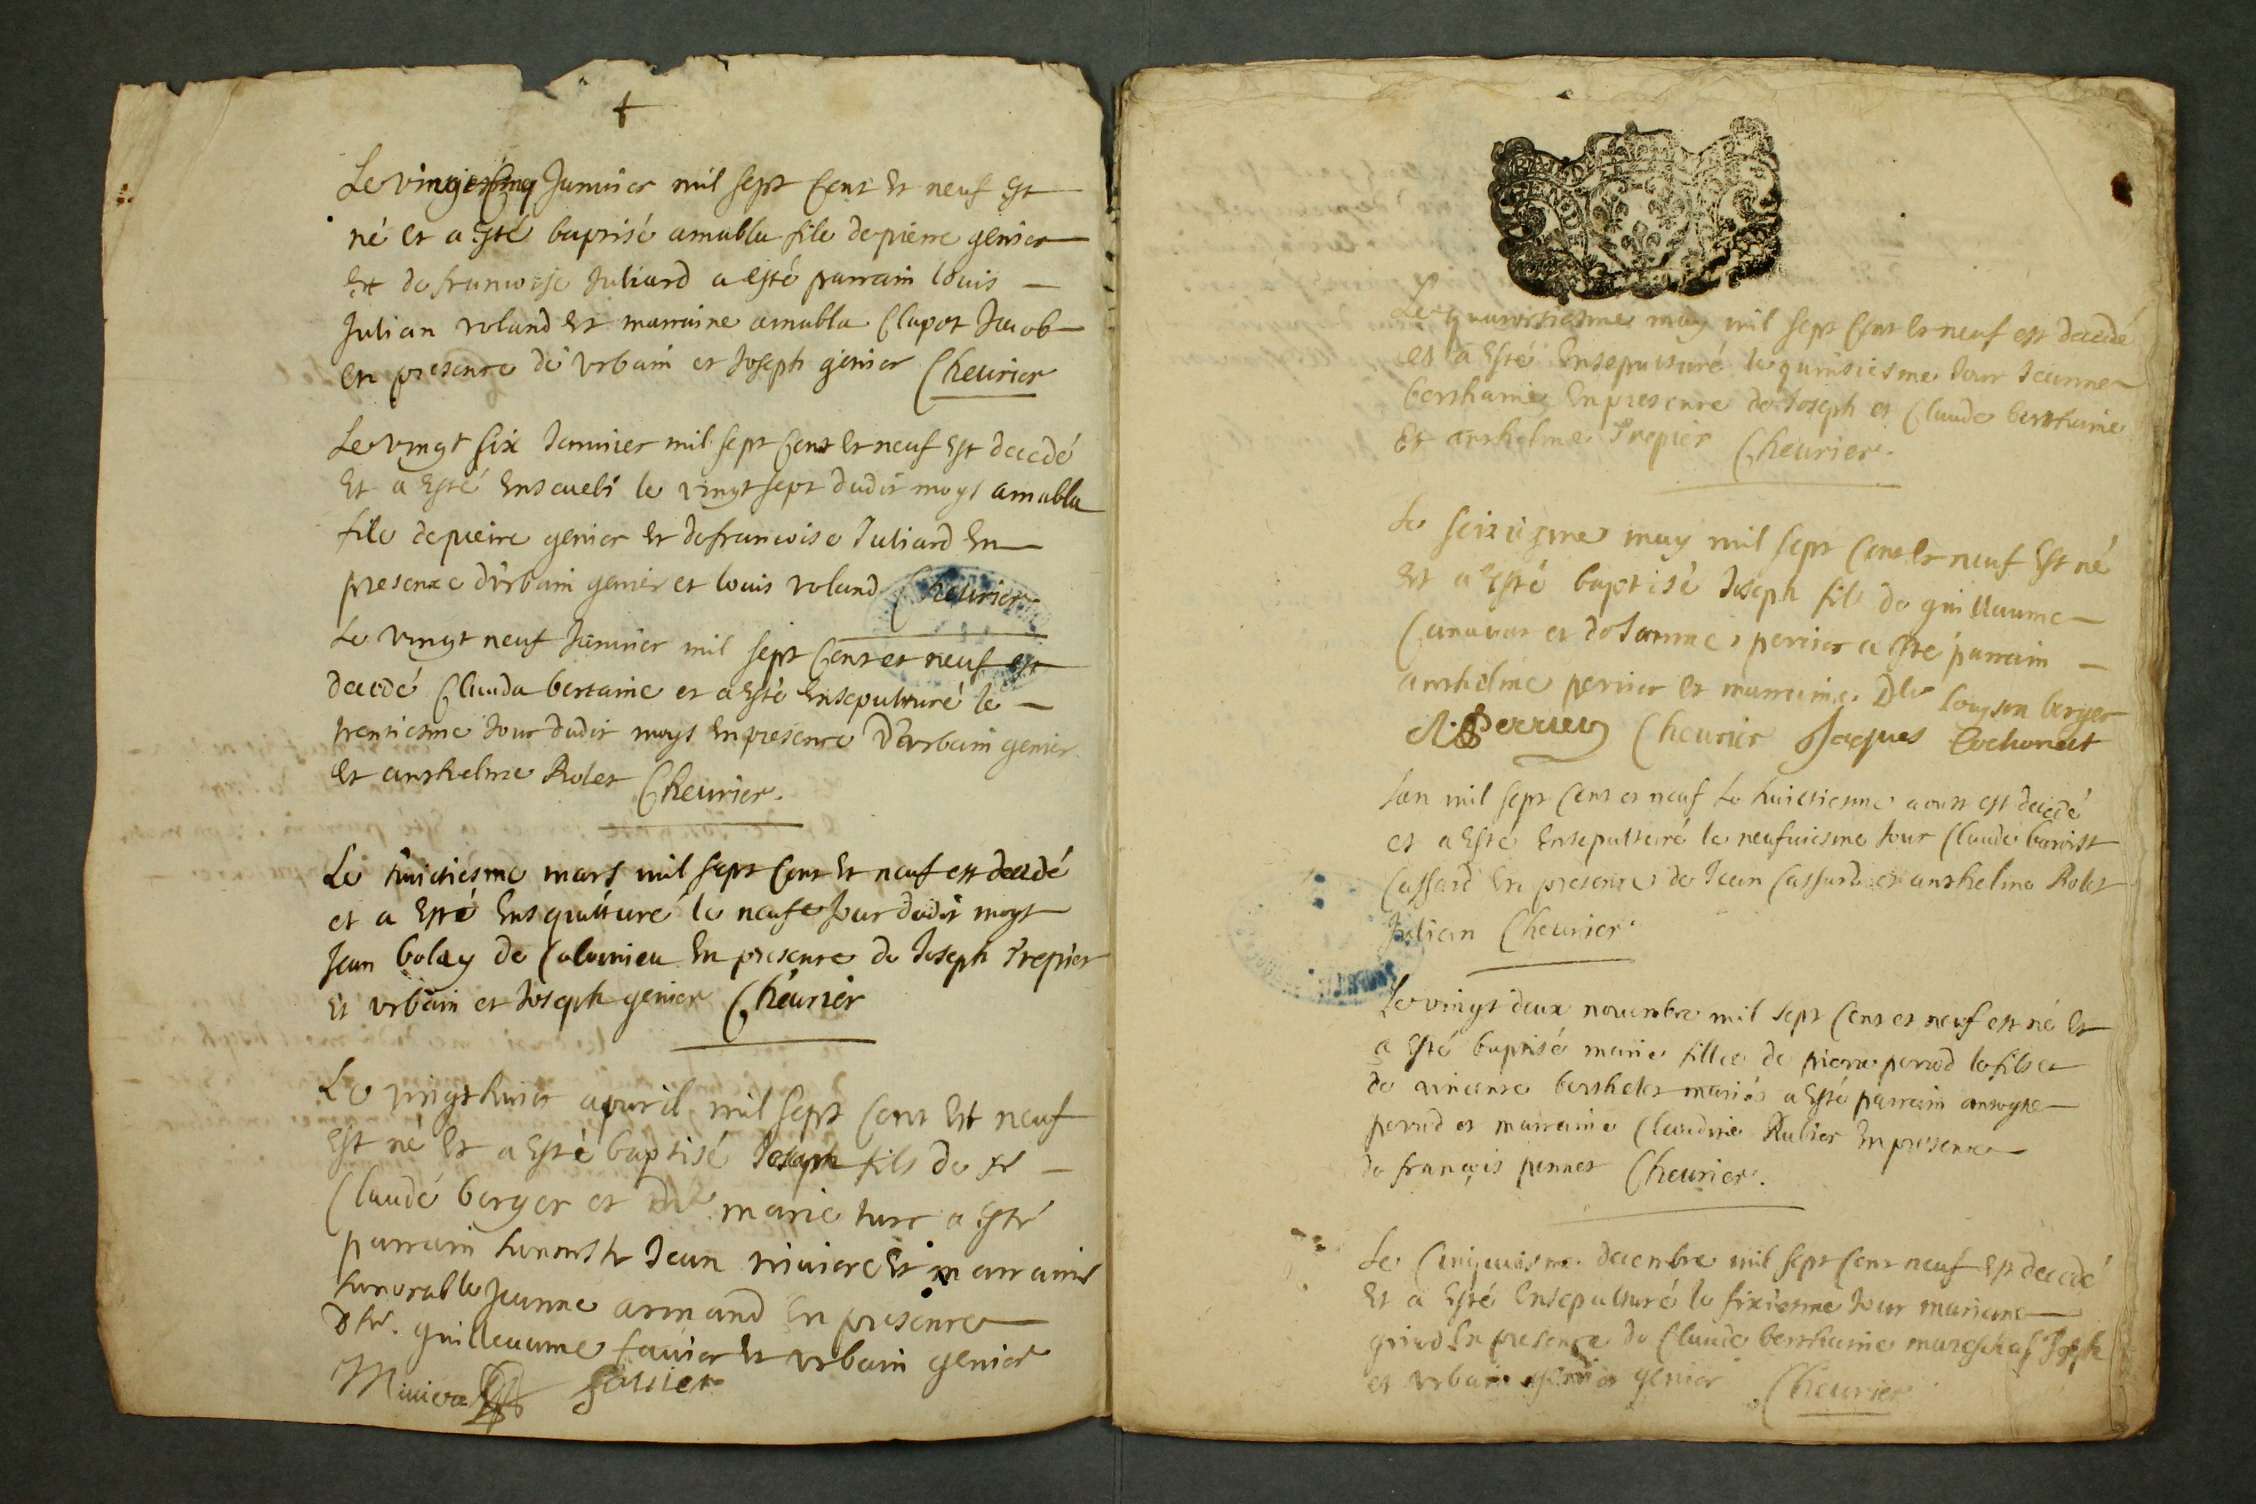 Le vingt cinq Januier mil sept Cent Et neuf Est
né et a Esté baptisé amabla file de pierre genier
Et de francoise Juliard a esté parrain louis
Julian roland Et marraine amabla Clapot Jacob
en presence de Vrbain et Joseph genier Cheurier
Le vingt six Januier mil sept Cent Et neuf Est decedé
Et a Esté Enseueli le vingt sept dudit moys amabla
file de pierre genier Et de francoise Juliard En
presence d'vrbain genier et louis roland Cheurier
Le vingt neuf Januier mil sept Cent et neuf est
decedé Clauda bertaine et a Esté Ensepulturé le
trentiesme Jour dudit moys En presence D'vrbain genier
Et anthelme Rolet Cheurier.
Le huictiesme mars mil sept Cent Et neuf est decedé
et a Esté Ensepulturé le neufe Jour dudit moys
Jean bolay de Colomieu En presence de Joseph Trepier
Et vrbain et Joseph genier Cheurier
Le vingt huict apuril mil sept Cent Et neuf
Est né Et a Esté baptisé Joseph fils de sr
Claude berger et Dlle marie turc a Esté
parrain Jean riuiere Et marraine
honorable Jeanne armand En presence
guilleaume fauier Et vrbain genier
Miuiere fauier
Le quatorsiesme may mil sept Cent Et neuf est decedé
et a Esté Ensepulturé le quinsiesme Jour Jeanne
berthaine En presence de Joseph et Claude berthaine
Et anthelme Trepier Cheurier.
Le seiziesme may mil sept Cent Et neuf Est né
Et a Esté baptisé Joseph fils de guillaume
Canauas et de Jeanne perrier a Esté parrain
anthelme perrier et marraine Dlle louyson berger
A. Perrier Cheurier Jaques Cochonat
Lan mil sept Cent et neuf le huictiesme aoust est decedé
et a Esté Ensepulturé le neufuiesme Jour Claude benoist
Cassard En presence de Jean Cassard et anthelme Rolet
Julian Cheurier
Le vingt deux nouembre mil sept Cent et neuf est né Et
a Esté baptisé marie fillie de pierre perrod le fils et
de vincente berthelet mariés a Esté parrain antoyne
perrod et marraine Claudine Rubier En presence
de françois pennet Cheurier.
Le Cinquiesme decembre mil sept Cent neuf Est decedé
Et a Esté Ensepulturé le sixiesme Jour mariane
En presence de Claude berthaine mareschal Joseph
et vrbain genier Cheurier